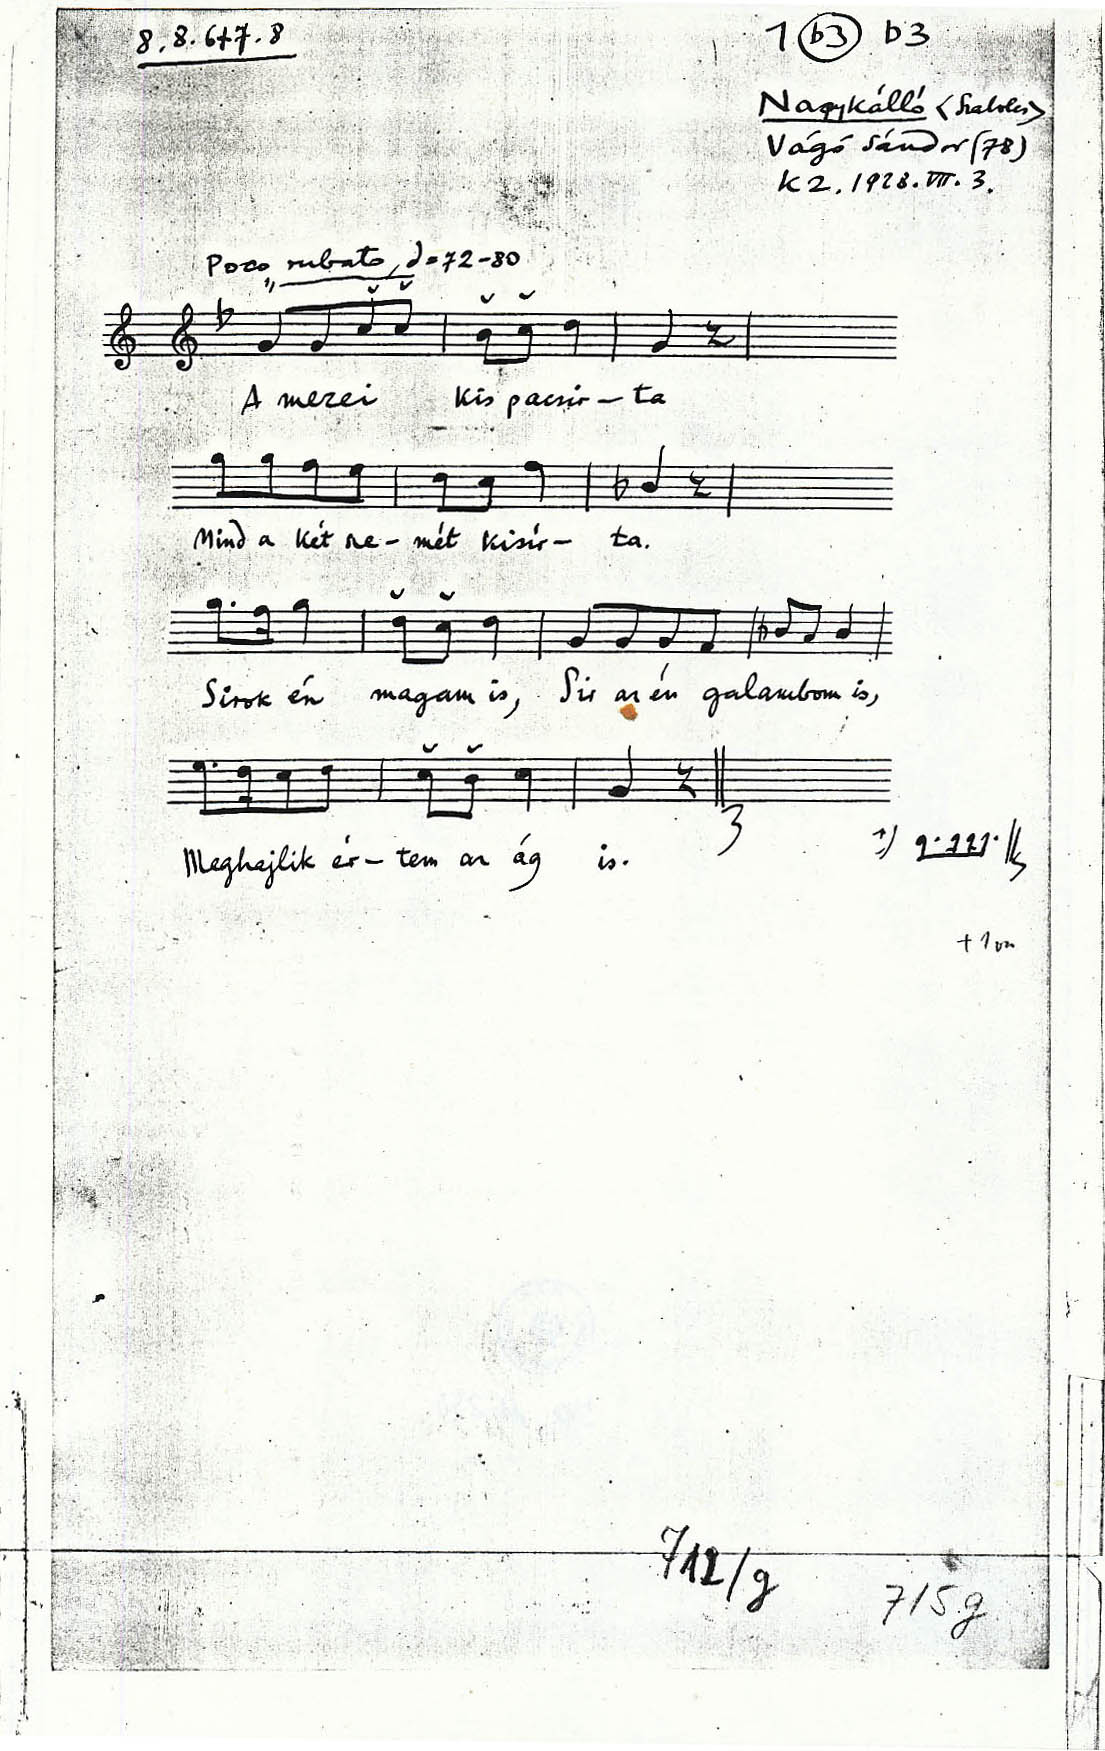 8. 8. 6+7. 8
1 b3 b3
Nagykálló (Szabolcs)
Vágó Sándor (78)
K2. 1928. VII. 3.
Poco rubato, = 72-80
A mezei kis pacsir-ta
Mind a két sze-mét kisír- ta.
Sirok én magam is, Sir az én galambom is,
Meghajlik ér-tem az ág is.
1)
+ 1 vsz
712/g
715g